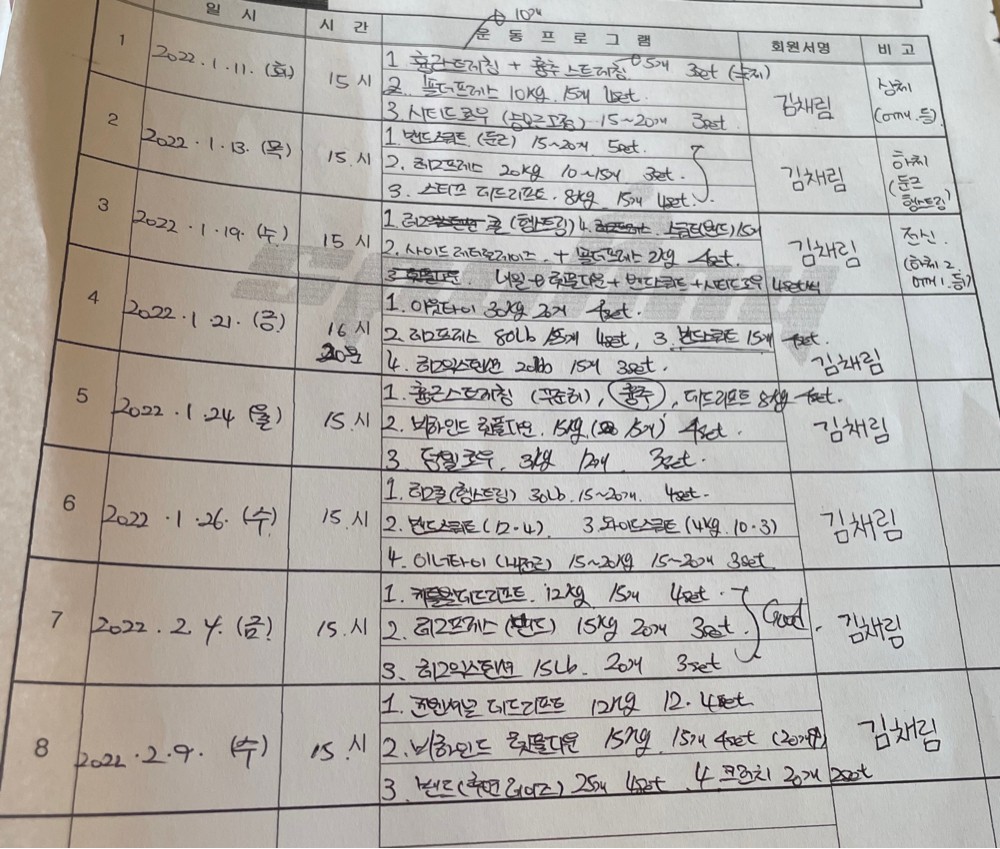 일 시 시 간 운 동 프 로 그 램 회원서명 비 고
10개
1 2022.1.11.(화) 15시 김채림 상체
1 흉근스트레칭 + 흉추스트레칭 3set
2. 숄더프레스 10kg. 15개 4set.
3. 시티드로우 15~20개 3set.
2 2022.1.13.(목) 15.시 김채림 하체 (둔근 햄스트링)
1. 밴드스쿼트 (둔근) 15~20개 5set.
2. 힙프레스 20kg 10~15개 3set.
3. 스티프 데드리프트. 8kg 15개 4set.
3 2022.1.19.(수) 15시 김채림 전신.
1. 컬 (햄스트링) 4. 15개
2. 사이드레터럴레이즈. + 숄더프레스 2kg 4set.
3. 내일은 랫풀다운 + 밴드스쿼트 + 시티드로우 4set씩
4 2022.1.21.(금) 16시 20분 김채림
1. 아웃타이 30kg 20개 4set.
2. 힙프레스 80Lb 15개 4set, 3. 밴드스쿼트 15개 4set.
4. 힙익스텐션 20lb 15개 3set.
5 2022.1.24(월) 15.시 김채림
1. 흉근스트레칭, 흉추, 데드리프트 8kg 4set.
2. 비하인드 랫풀다운. 15kg 15개 4set.
3. 덤벨로우. 3kg 12개 3set.
6 2022.1.26.(수) 15.시 김채림
1. 힙컬(햄스트링) 30lb. 15~20개. 4set.
2. 밴드스쿼트 (12.4) 3 와이드스쿼트 (4kg. 10.3)
4. 이너타이 (내전근) 15~20kg 15~20개 3set
7 2022.2.4.(금) 15.시 김채림
1. 데드리프트. 12kg 15개 4set. Good.
2. 힙프레스 (밴드) 15kg 20개 3set.
3. 힙익스텐션 15Lb. 20개 3set
8 2022.2.9.(수) 15.시 김채림
1. 컨벤셔널 데드리프트 12kg 12.4set
2. 비하인드 랫풀다운 15kg. 15개 4set
3. 밴드(후면레이즈) 25개 4set 4. 크런치 20개 2set